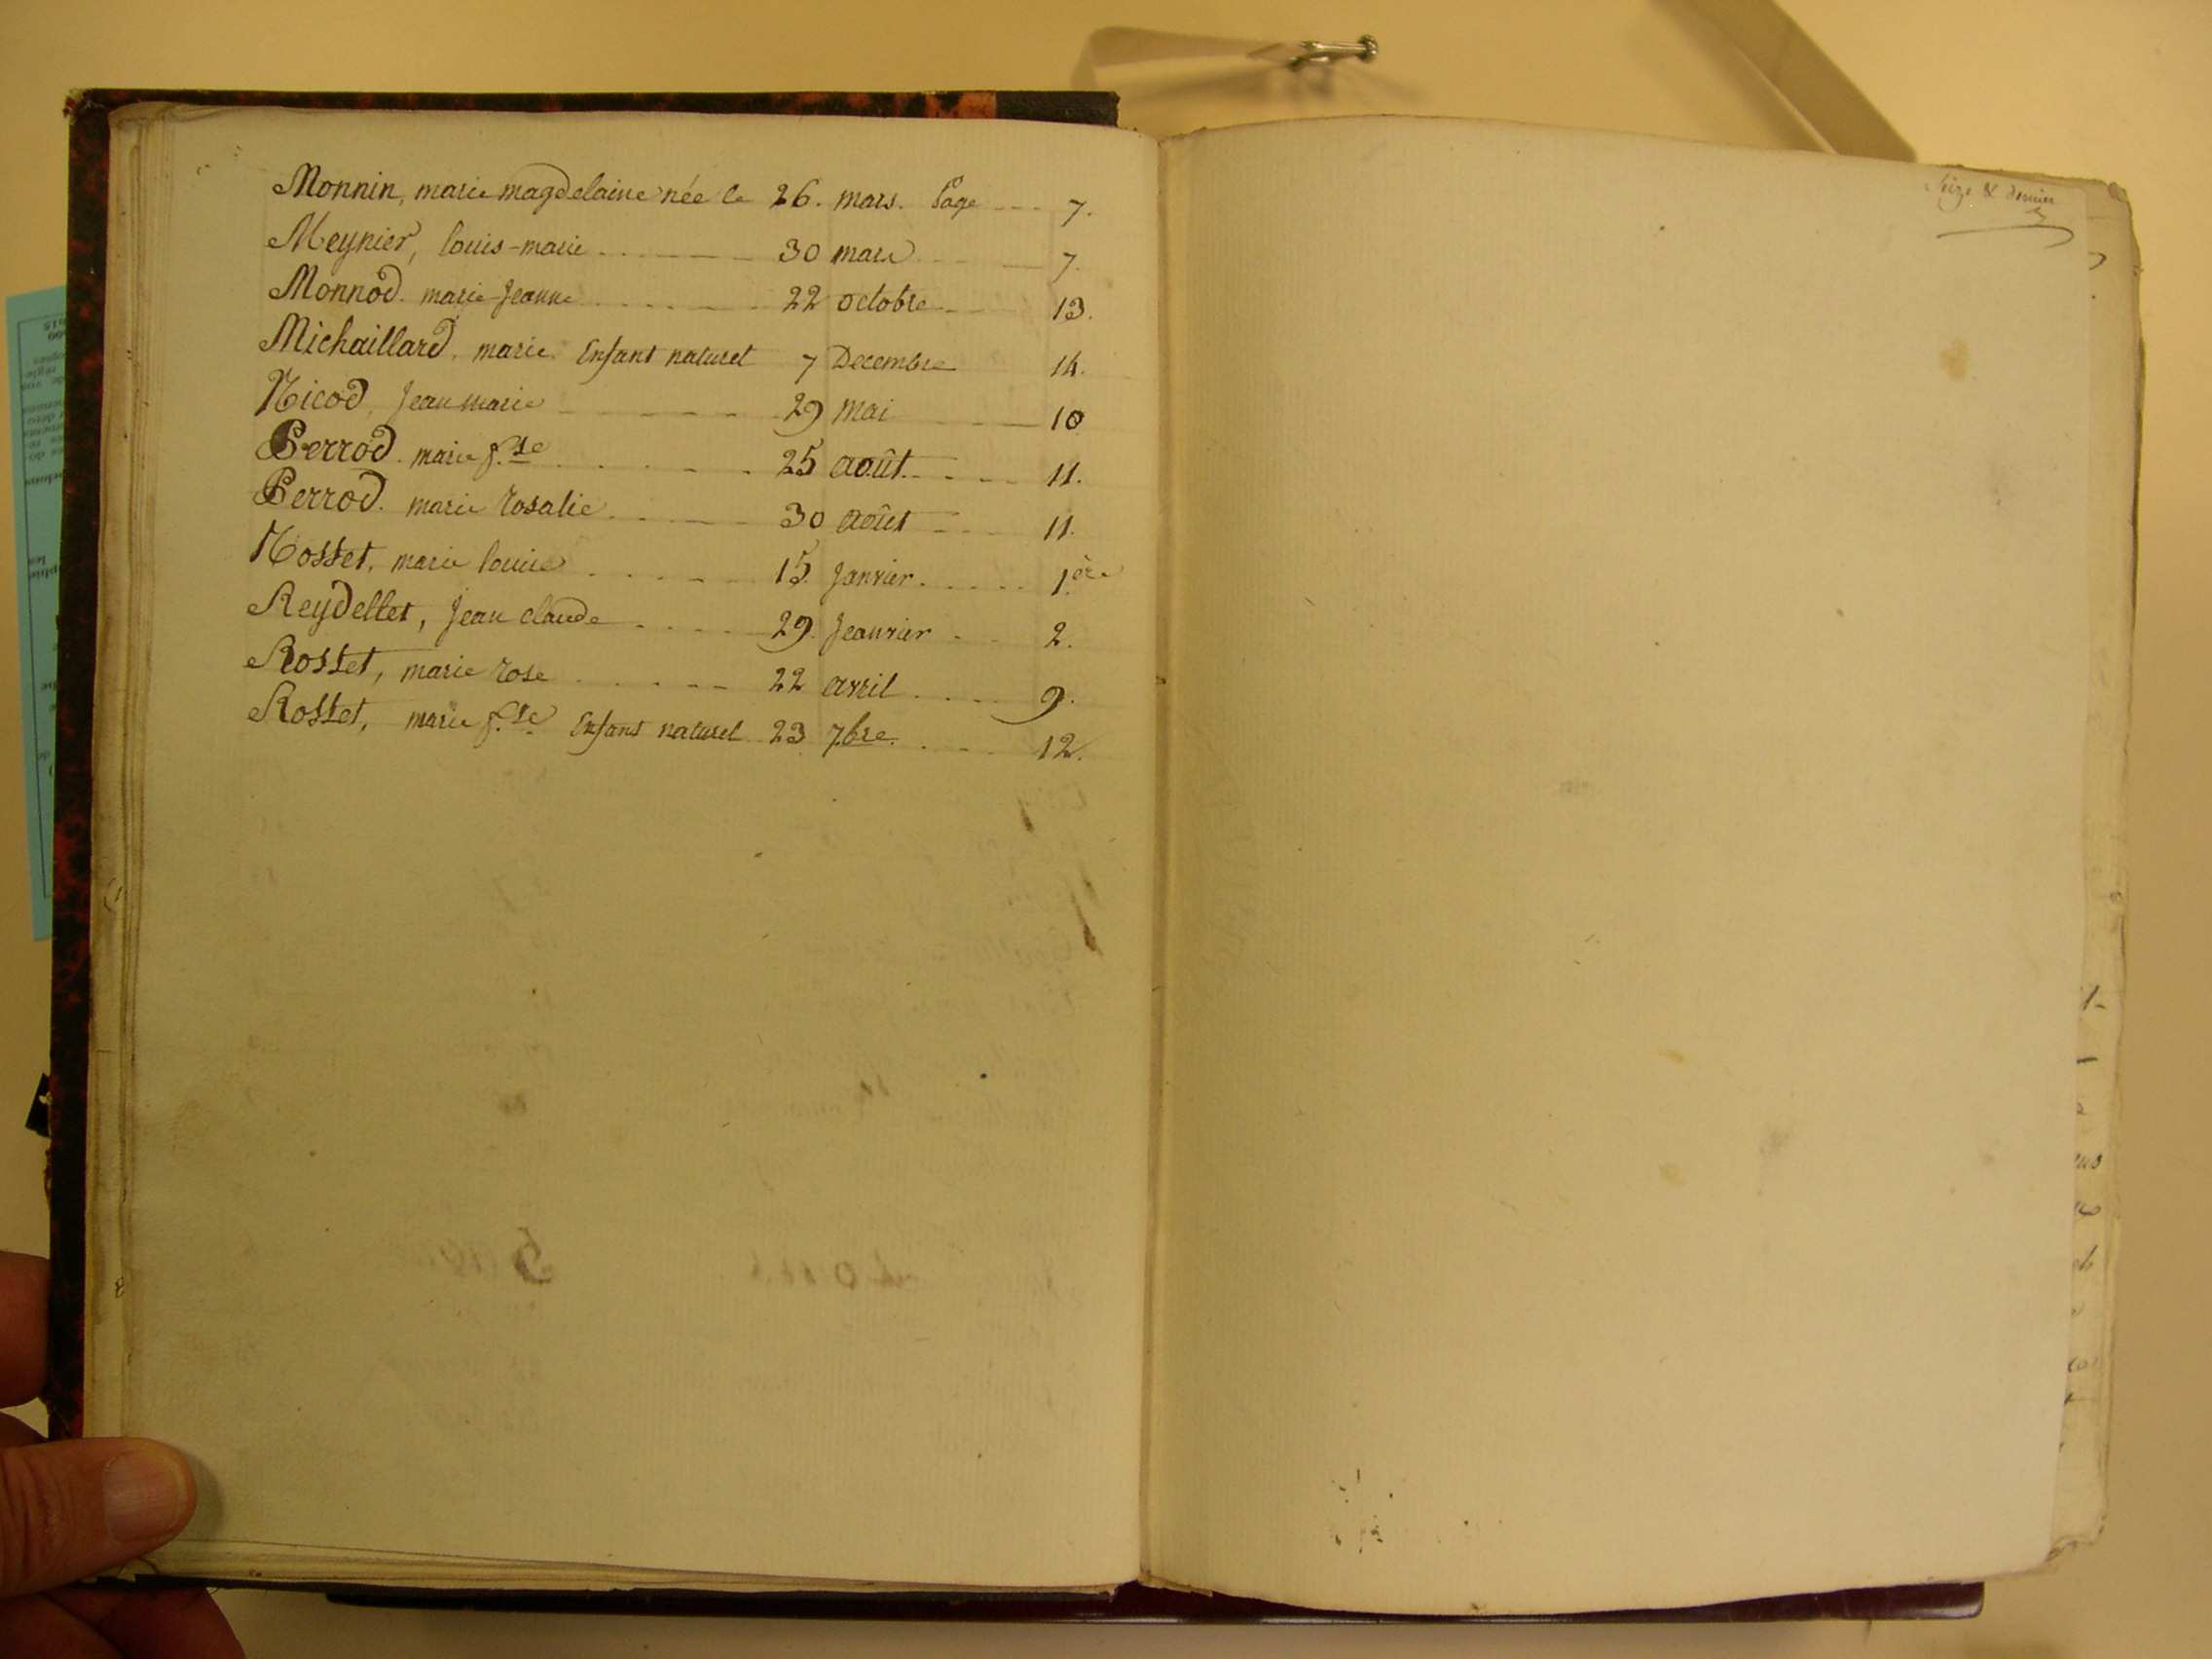 Monnin, marie magdelaine née le 26. mars. Page 7.
Meynier, louis-marie 30 mars 7.
Monnod. marie Jeanne 22 octobre 13.
Michaillard. marie. Enfant naturel 7 Decembre 14.
Nicod, Jean marie 29 mai 10
Perrod. marie f.se 25 août. 11.
Perrod. marie rosalie 30 août 11.
Rosset, marie louise 15. Janvier. 1.ère
Reydellet, Jean claude 29. Jeanvier 2.
Rosset, marie rose 22 avril 9.
Rosset, marie f.se Enfant naturel 23 7.bre. 12.
Seize & dernier